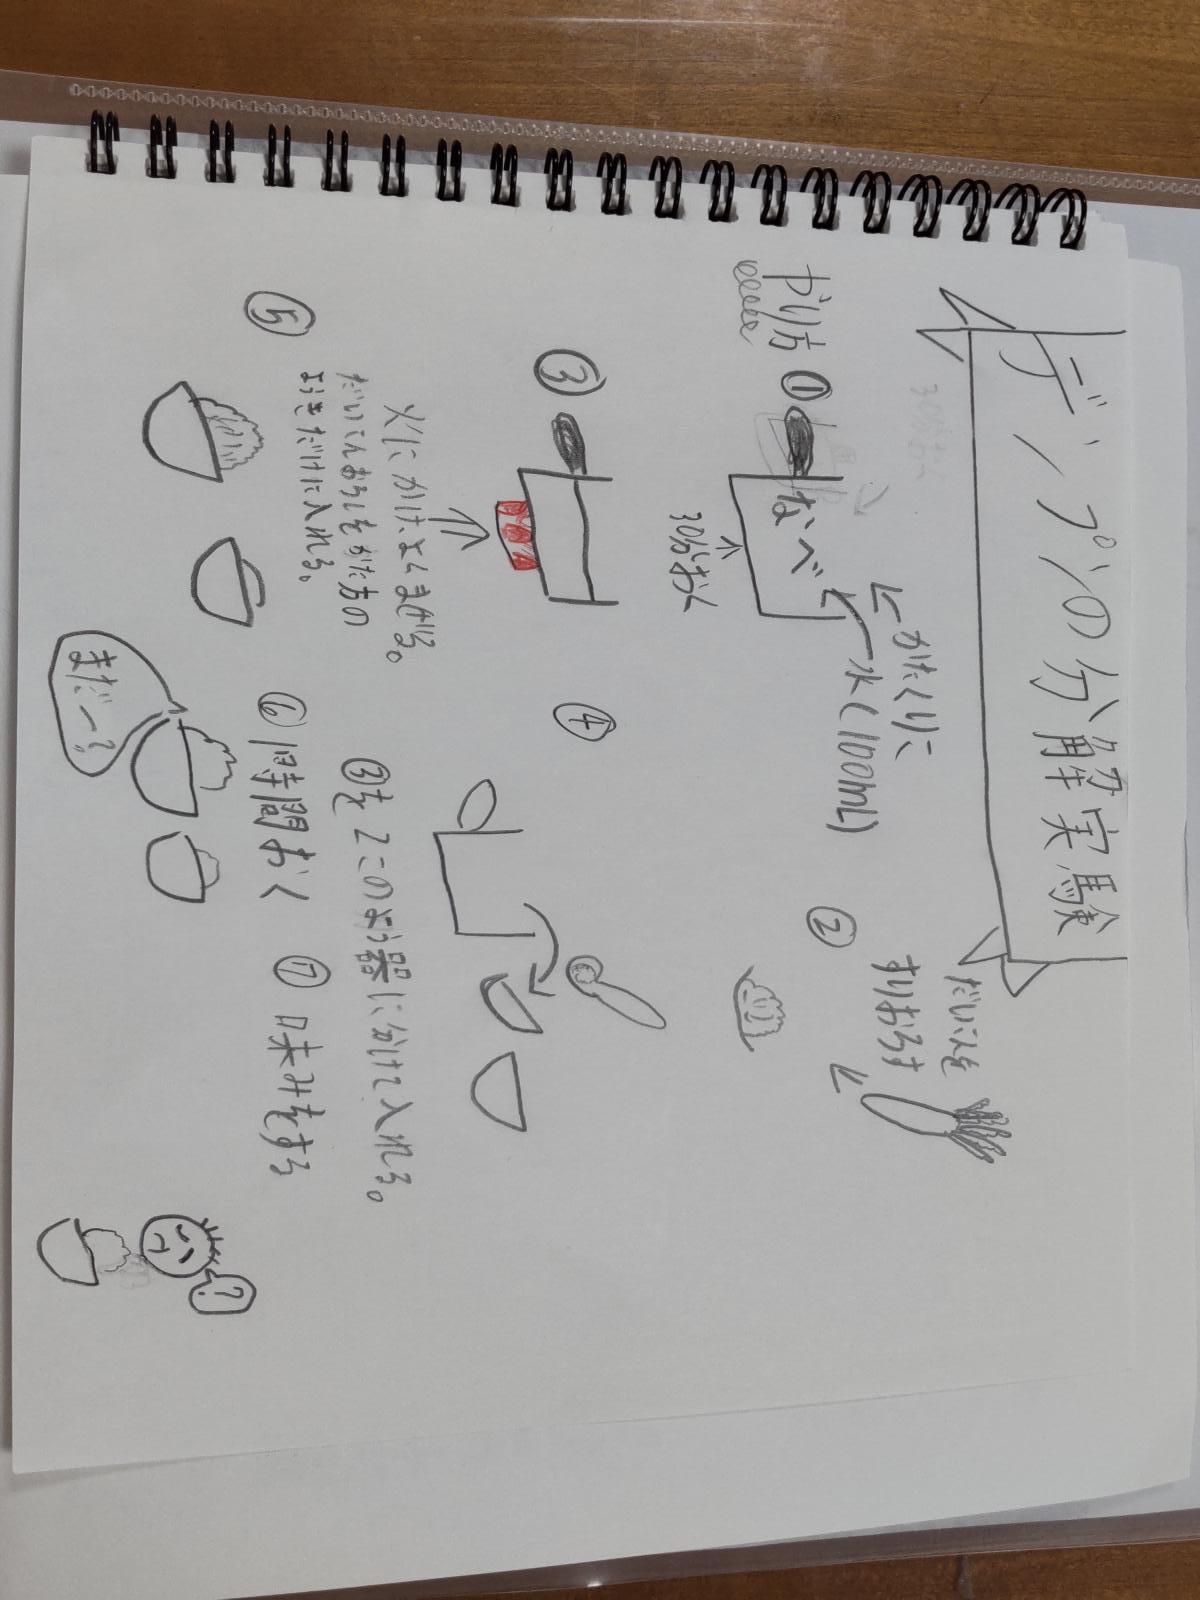 デンプンの分解実験
やり方
①
なべ
かたくりこ
水(100mL)
30分おく
②
だいこんを
すりおろす
③
火にかけよくまぜる。
④
③を2この容器に分けて入れる。
⑤
だいこんおろしをかた方の
ようきだけに入れる。
⑥ 1時間おく
まだー?
⑦ 味みをする
?